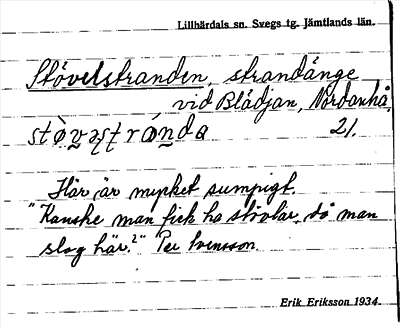 Lillhärdals sn. Svegs tg. Jämtlands län.
Stövelstranden, strandänge
vid Blädjan, Nordanhå
21.
Här är mycket sumpigt.
"Kanske man fick ha stövlar, då man
slog här?" Per Svensson.
Erik Eriksson 1934.